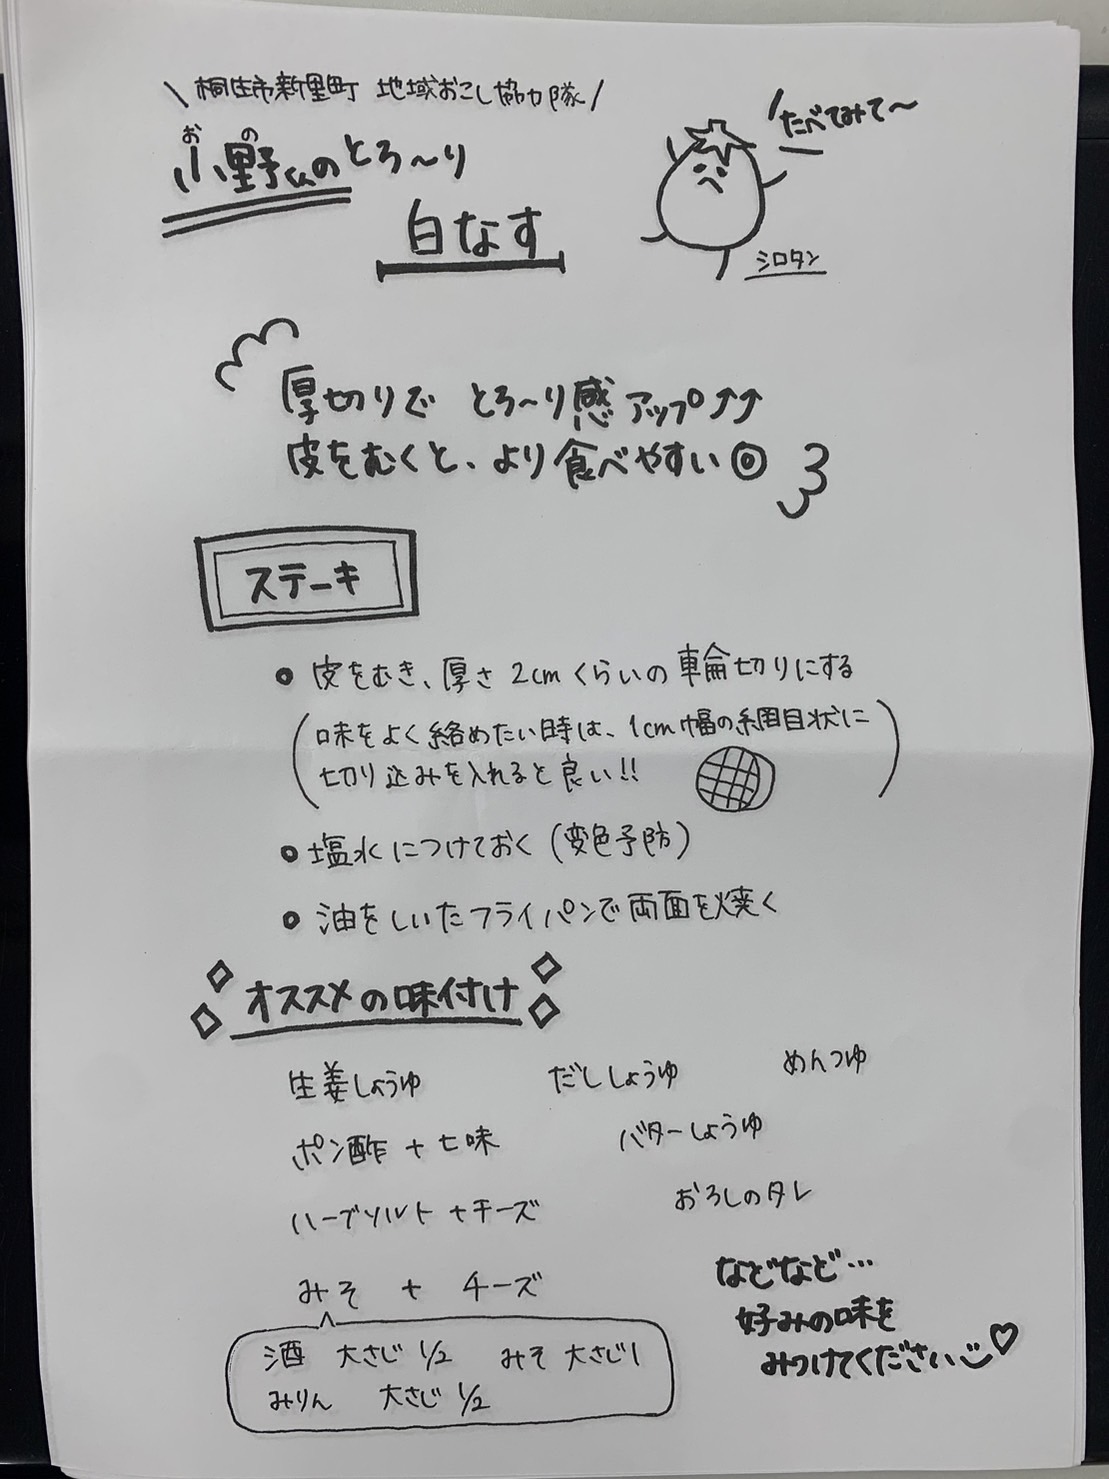 \桐生市新里町 地域おこし協力隊/
おの
小野くんのとろ〜り
白なす
たべてみて〜
シロタン
厚切りで とろ〜り感アップ↑↑
皮をむくと、より食べやすい◎
ステーキ
• 皮をむき、厚さ 2cmくらいの車輪切りにする
(味をよく絡めたい時は、1cm幅の網目状に
切り込みを入れると良い!!)
• 塩水につけておく(変色予防)
• 油をしいたフライパンで両面を焼く
オススメの味付け
生姜しょうゆ だししょうゆ めんつゆ
ポン酢 + 七味 バターしょうゆ
ハーブソルト + チーズ おろしのタレ
みそ + チーズ
酒 大さじ 1/2 みそ 大さじ1
みりん 大さじ 1/2
などなど…
好みの味を
みつけてください♡